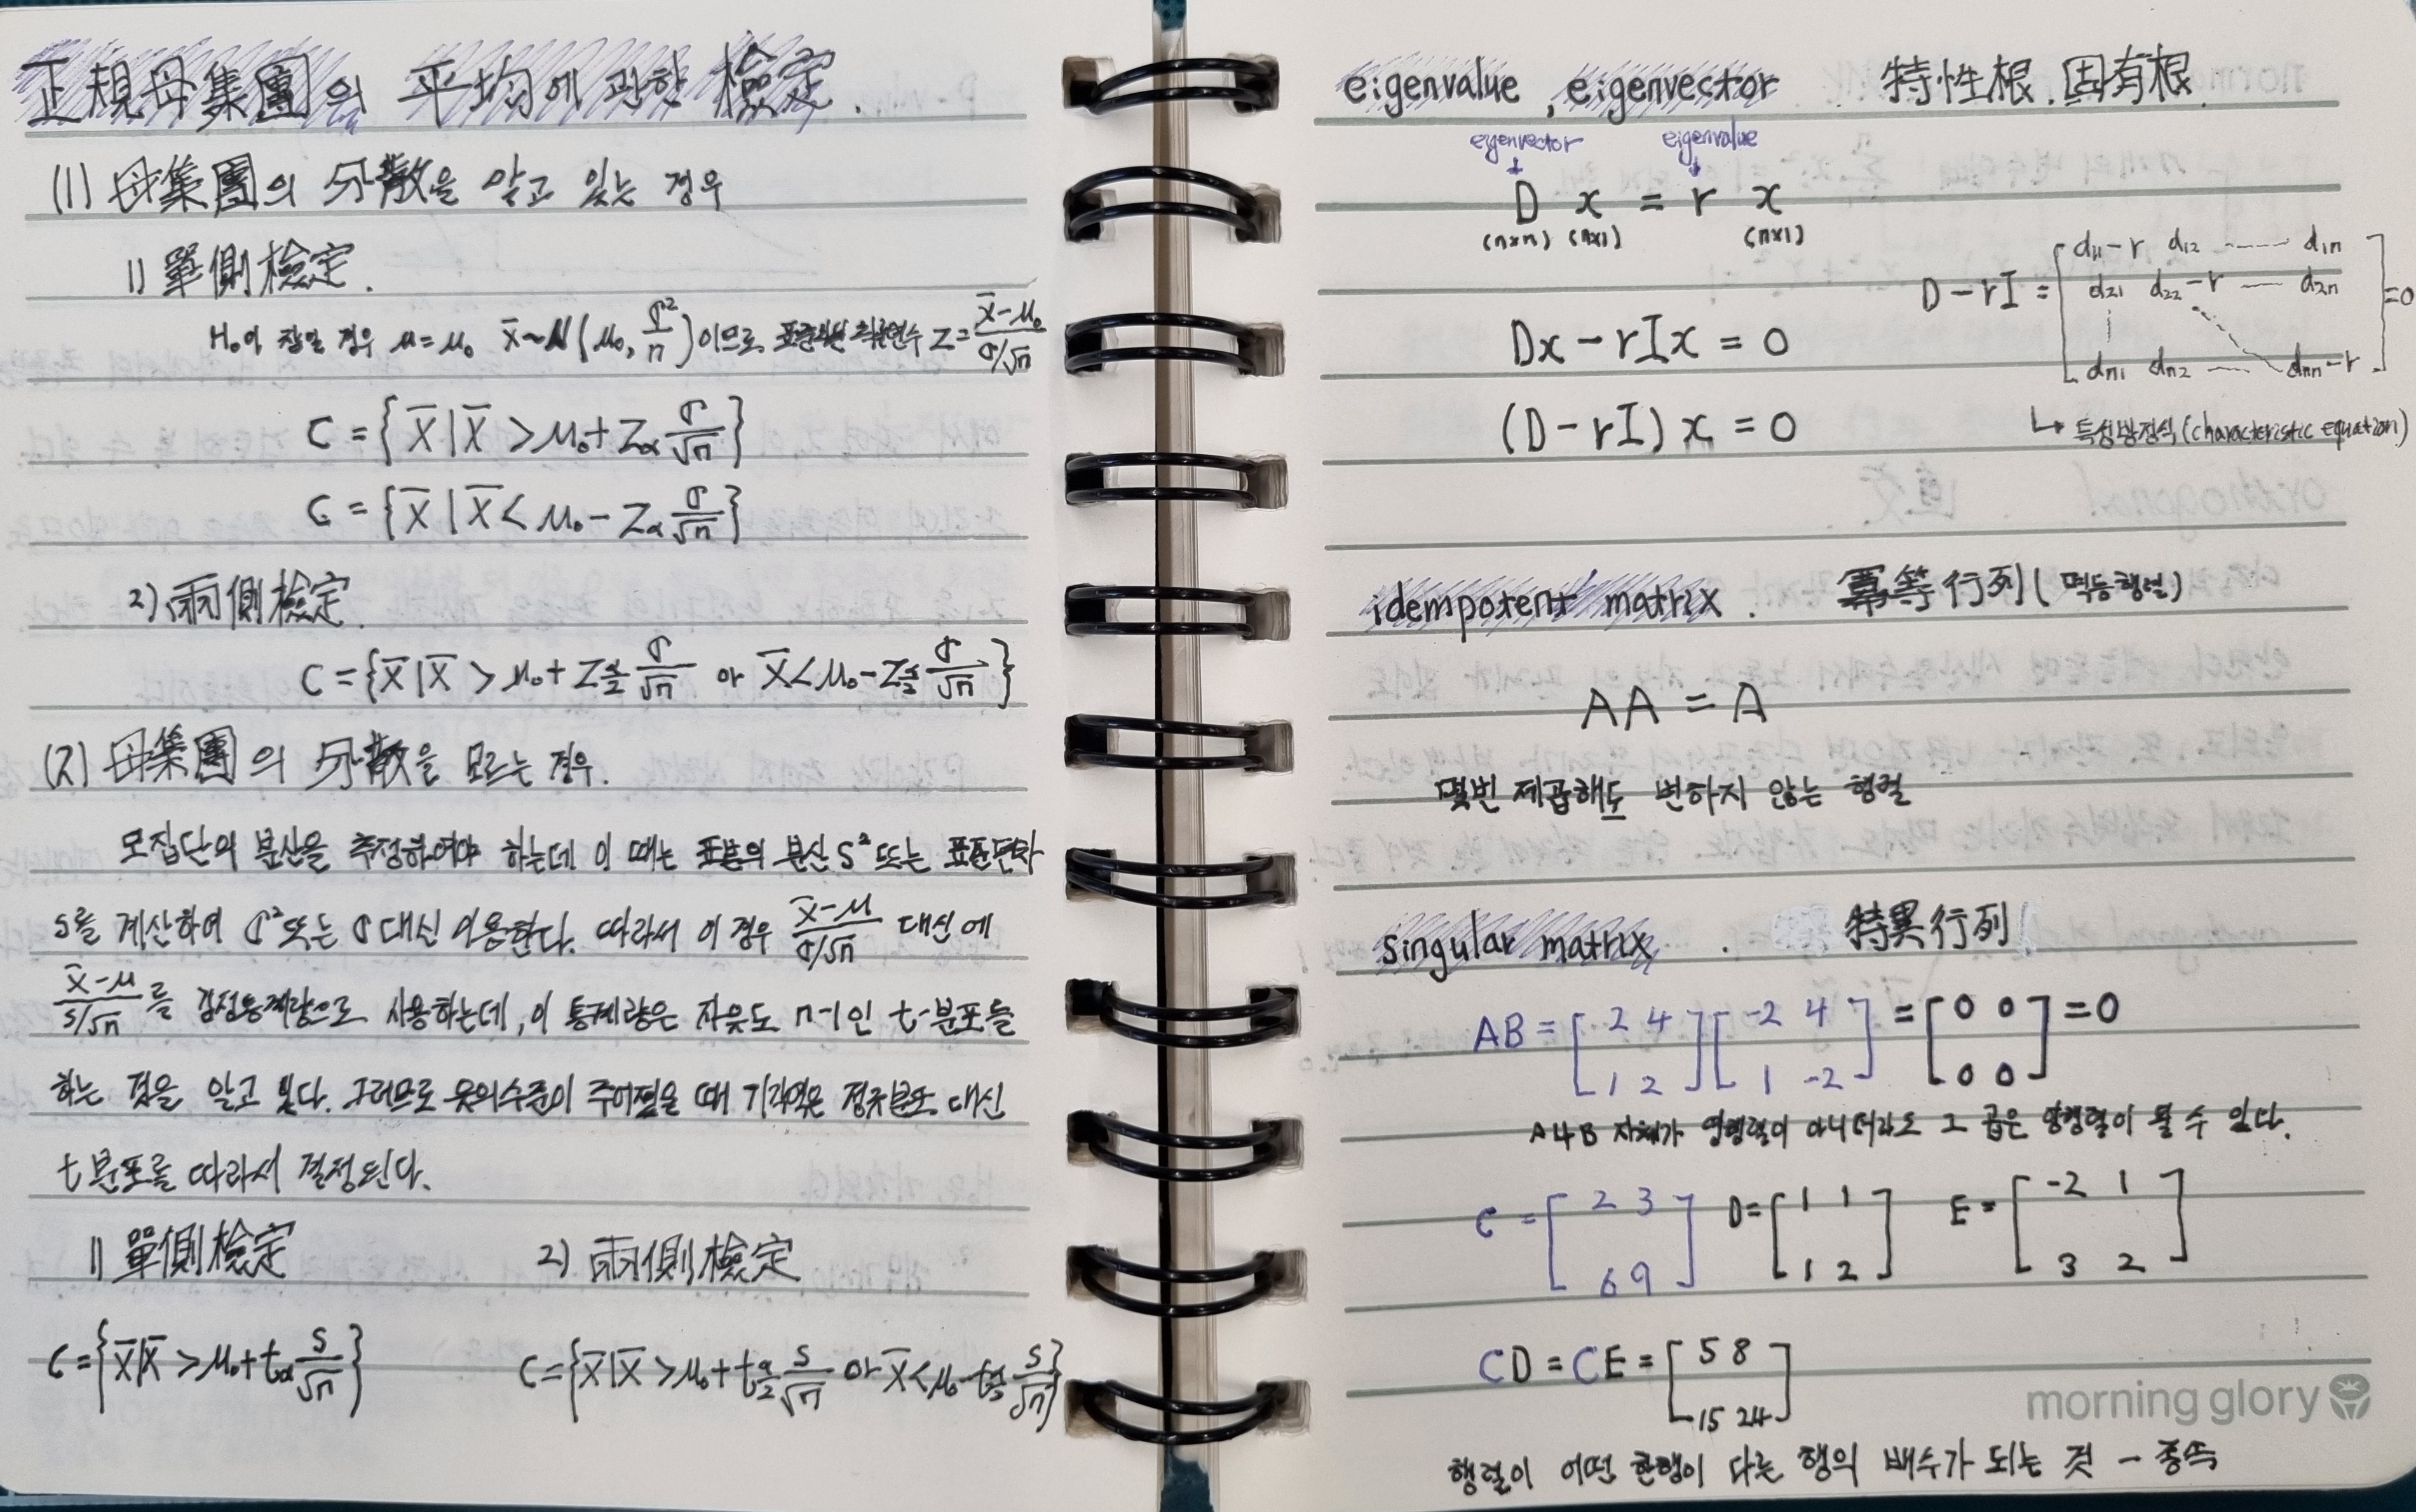 正規母集團의 平均에 관한 檢定.
(1) 母集團의 分散을 알고 있는 경우
1) 單側檢定.
H₀이 참일 경우 μ=μ₀ X̄~N(μ₀, σ²/n)이므로 표준화된 확률변수 Z=(X̄-μ₀)/(σ/√n)
C={X̄|X̄>μ₀+Zα σ/√n}
C={X̄|X̄<μ₀-Zα σ/√n}
2) 兩側檢定.
C={X̄|X̄>μ₀+Zα/2 σ/√n or X̄<μ₀-Zα/2 σ/√n}
(2) 母集團의 分散을 모르는 경우.
모집단의 분산을 추정하여야 하는데 이 때는 표본의 분산 S²또는 표준편차
S를 계산하여 σ²또는 σ대신 이용한다. 따라서 이 경우 (X̄-μ)/(σ/√n) 대신에
(X̄-μ)/(S/√n)를 검정통계량으로 사용하는데, 이 통계량은 자유도 n-1인 t-분포를
하는 것을 알고 있다. 그러므로 유의수준이 주어졌을 때 기각역은 정규분포 대신
t분포를 따라서 결정된다.
1) 單側檢定 2) 兩側檢定
C={X̄|X̄>μ₀+tα S/√n} C={X̄|X̄>μ₀+tα/2 S/√n or X̄<μ₀-tα/2 S/√n}
eigenvalue, eigenvector 特性根. 固有根.
eigenvector eigenvalue
↓ ↓
D x = r x
(n×n) (n×1) (n×1)
D-rI = [d₁₁-r d₁₂ ---- d₁n
d₂₁ d₂₂-r --- d₂n
dn₁ dn₂ --- dnn-r] =0
Dx-rIx=0
(D-rI)x=0
↳ 특성방정식(characteristic equation)
idempotent matrix. 冪等行列(멱등행렬)
AA=A
몇번 제곱해도 변하지 않는 행렬
singular matrix. 特異行列
AB=[2 4][-2 4]=[0 0]=0
[1 2][1 -2] [0 0]
A나 B 자체가 영행렬이 아니더라도 그 곱은 영행렬이 될 수 있다.
C=[2 3] D=[1 1] E=[-2 1]
[6 9] [1 2] [3 2]
CD=CE=[5 8]
[15 24]
행렬이 어떤 한행이 다른 행의 배수가 되는 것 - 종속
morning glory